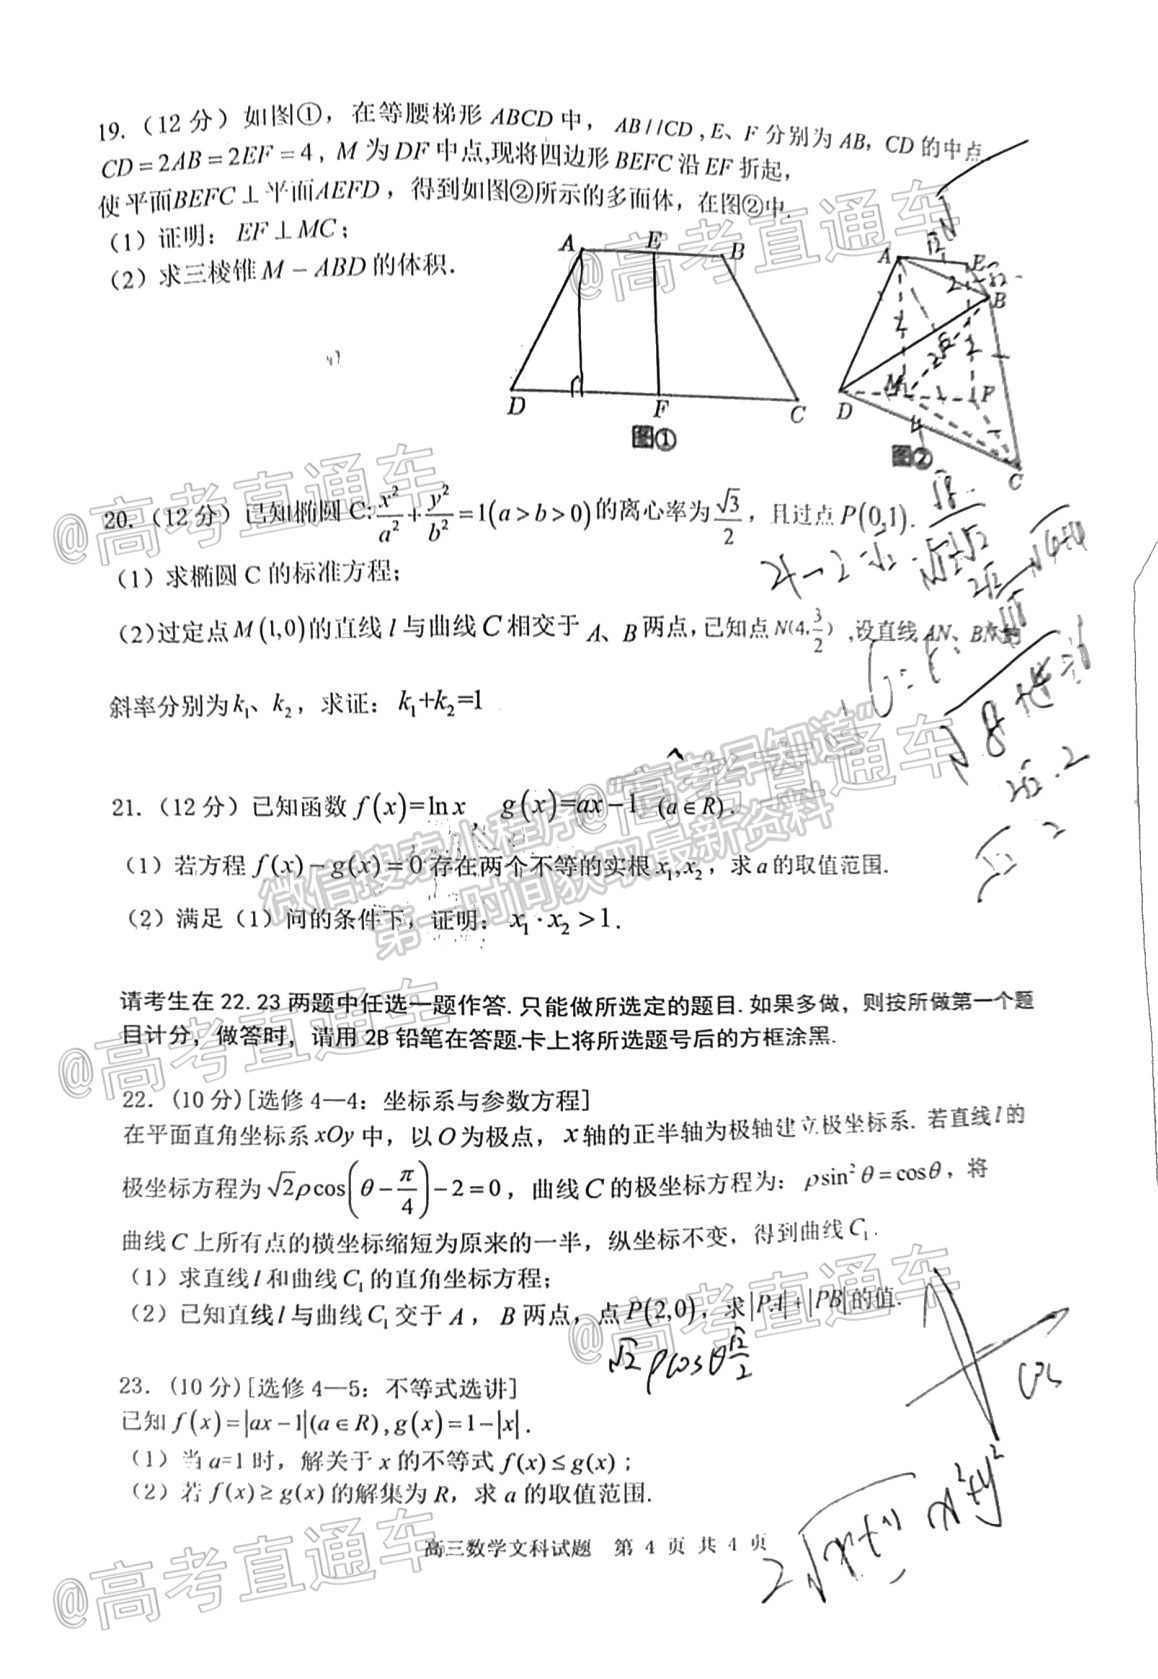 19.（12 分）如图①，在等腰梯形 ABCD 中，AB//CD,E、F 分别为 AB，CD 的中点,
CD=2AB=2EF=4，M 为 DF 中点,现将四边形 BEFC 沿 EF 折起，
使平面BEFC⊥平面AEFD，得到如图②所示的多面体，在图②中.
（1）证明：EF⊥MC；
（2）求三棱锥 M－ABD 的体积.
A E B
D F C
图①
A E B
D M F C
图②
20.（12 分）已知椭圆 C: x²/a² + y²/b² =1(a>b>0)的离心率为 √3/2，且过点 P(0,1).
（1）求椭圆 C 的标准方程；
（2）过定点 M(1,0)的直线 l 与曲线 C 相交于 A、B 两点，已知点 N(4, 3/2) ,设直线 AN、BN 的
斜率分别为 k₁、k₂，求证：k₁+k₂=1
21.（12 分）已知函数 f(x)=ln x，g(x)=ax−1 (a∈R).
（1）若方程 f(x)−g(x)=0 存在两个不等的实根 x₁,x₂，求 a 的取值范围.
（2）满足（1）问的条件下，证明：x₁·x₂>1.
请考生在 22.23 两题中任选一题作答.只能做所选定的题目.如果多做，则按所做第一个题
目计分，做答时，请用 2B 铅笔在答题.卡上将所选题号后的方框涂黑.
22.（10 分）[选修 4—4：坐标系与参数方程]
在平面直角坐标系 xOy 中，以 O 为极点，x 轴的正半轴为极轴建立极坐标系. 若直线 l 的
极坐标方程为 √2ρcos(θ−π/4)−2=0，曲线 C 的极坐标方程为：ρsin²θ=cosθ，将
曲线 C 上所有点的横坐标缩短为原来的一半，纵坐标不变，得到曲线 C₁.
（1）求直线 l 和曲线 C₁ 的直角坐标方程；
（2）已知直线 l 与曲线 C₁ 交于 A，B 两点，点 P(2,0)，求|PA|+|PB|的值.
√2 ρcosθ √2/2
23.（10 分）[选修 4—5：不等式选讲]
已知 f(x)=|ax−1|(a∈R),g(x)=1−|x|.
（1）当 a=1 时，解关于 x 的不等式 f(x)≤g(x)；
（2）若 f(x)≥g(x) 的解集为 R，求 a 的取值范围.
高三数学文科试题 第 4 页 共 4 页
@高考直通车
@高考直通车
微信搜索小程序@"高考早知道"
第一时间获取最新资料
@高考直通车
@高考直通车
@高考直通车
@高考直通车